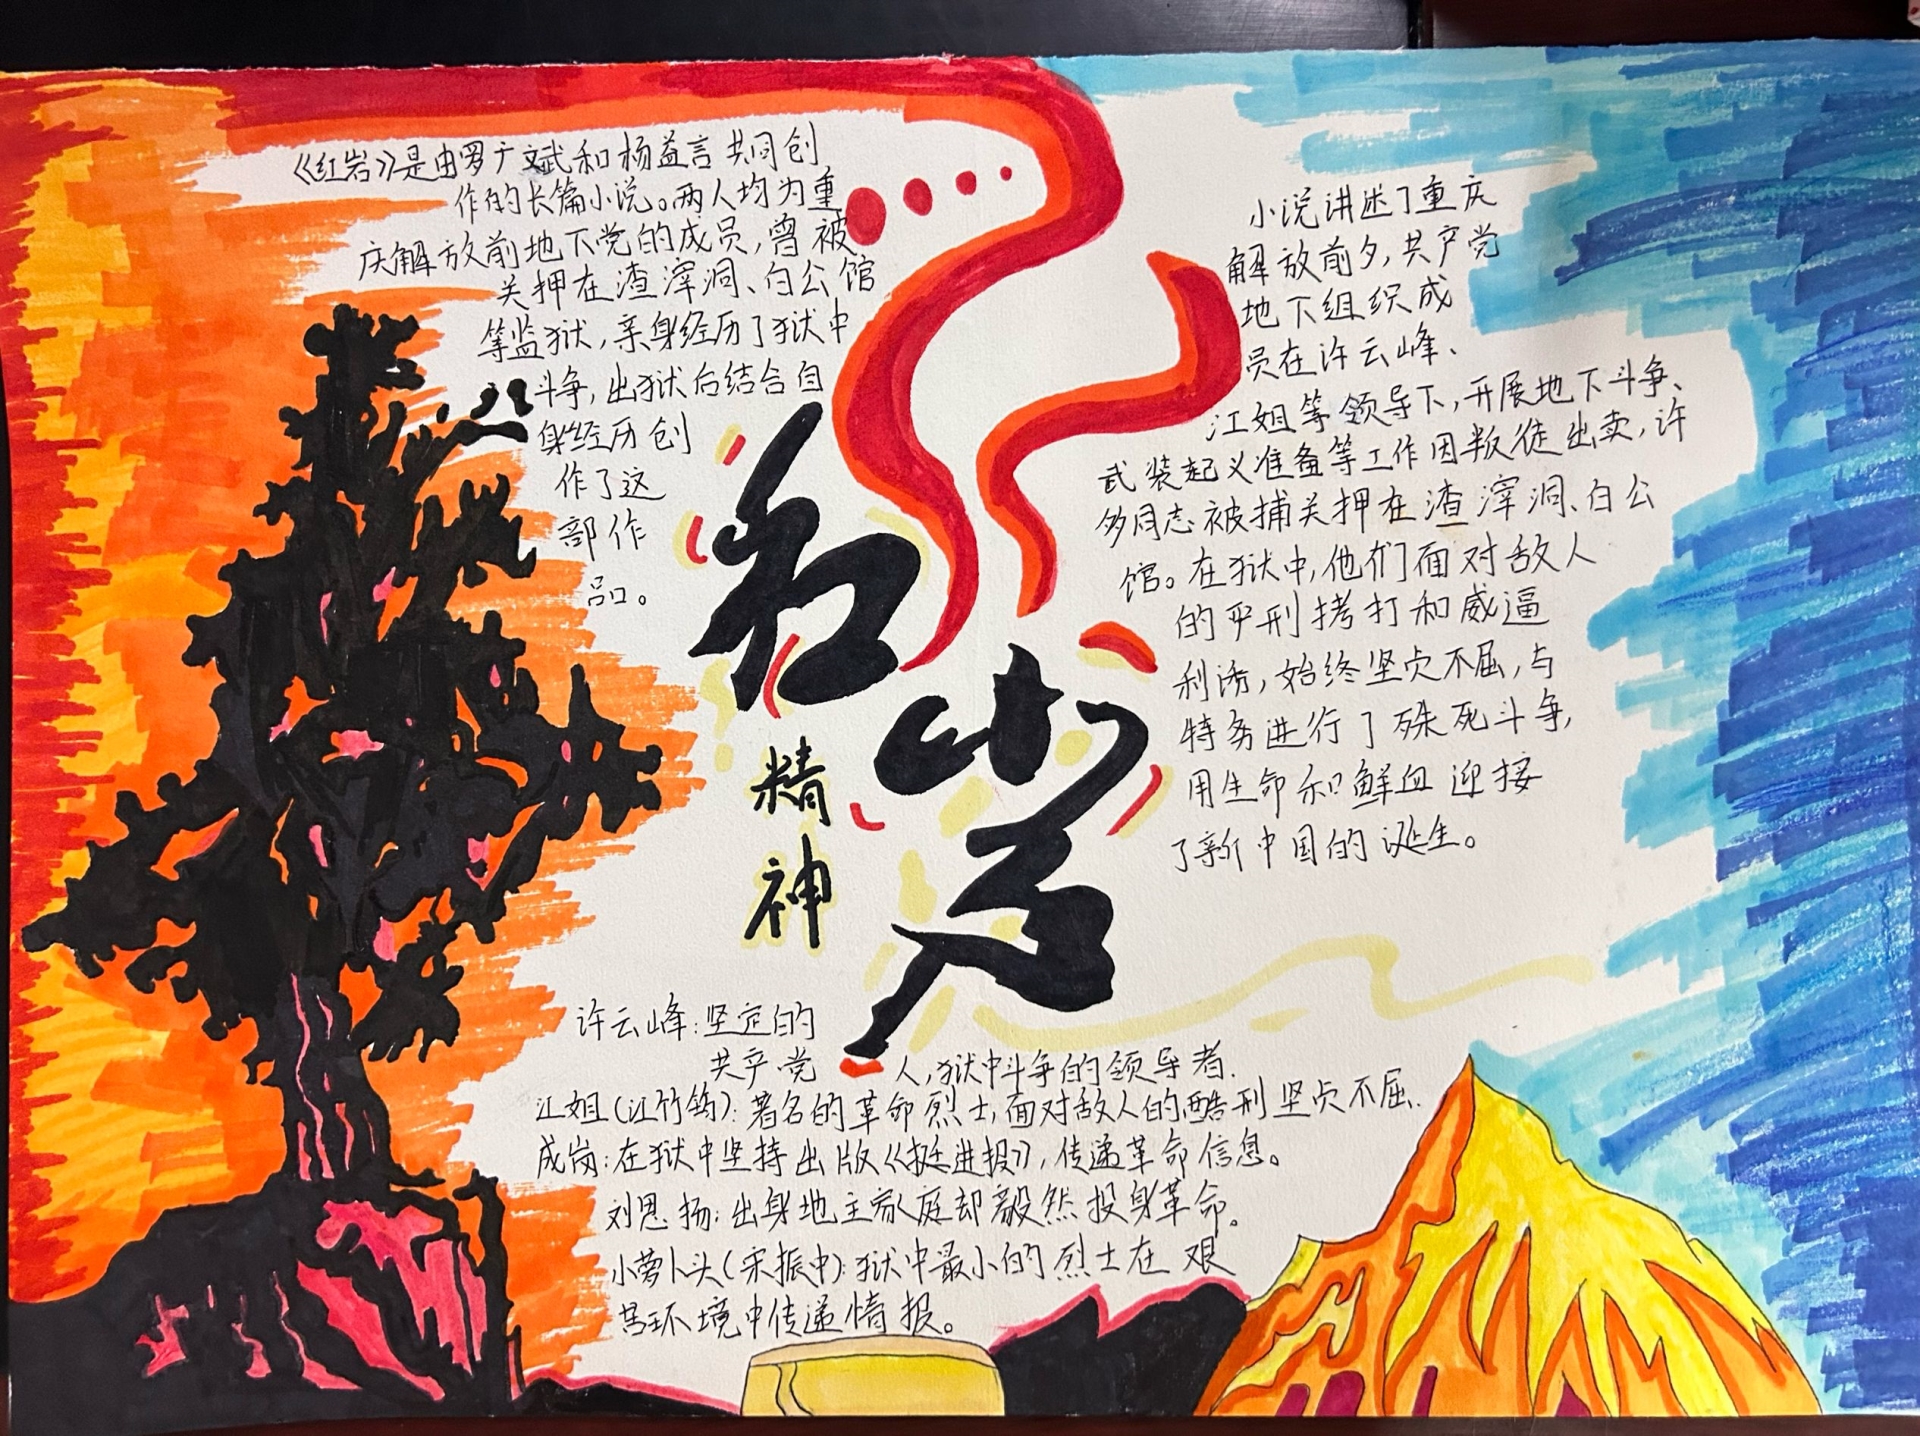 《红岩》是由罗广斌和杨益言共同创
作的长篇小说。两人均为重
庆解放前地下党的成员，曾被
关押在渣滓洞、白公馆
等监狱，亲身经历了狱中
斗争，出狱后结合自
身经历创
作了这
部作
品。
红岩
精神
小说讲述了重庆
解放前夕，共产党
地下组织成
员在许云峰、
江姐等领导下，开展地下斗争、
武装起义准备等工作因叛徒出卖，许
多同志被捕关押在渣滓洞、白公
馆。在狱中，他们面对敌人
的严刑拷打和威逼
利诱，始终坚贞不屈，与
特务进行了殊死斗争，
用生命和鲜血迎接
了新中国的诞生。
许云峰：坚定的
共产党人，狱中斗争的领导者.
江姐(江竹筠)：著名的革命烈士，面对敌人的酷刑坚贞不屈.
成岗：在狱中坚持出版《挺进报》，传递革命信息。
刘思扬：出身地主家庭却毅然投身革命。
小萝卜头(宋振中)：狱中最小的烈士在艰
苦环境中传递情报。